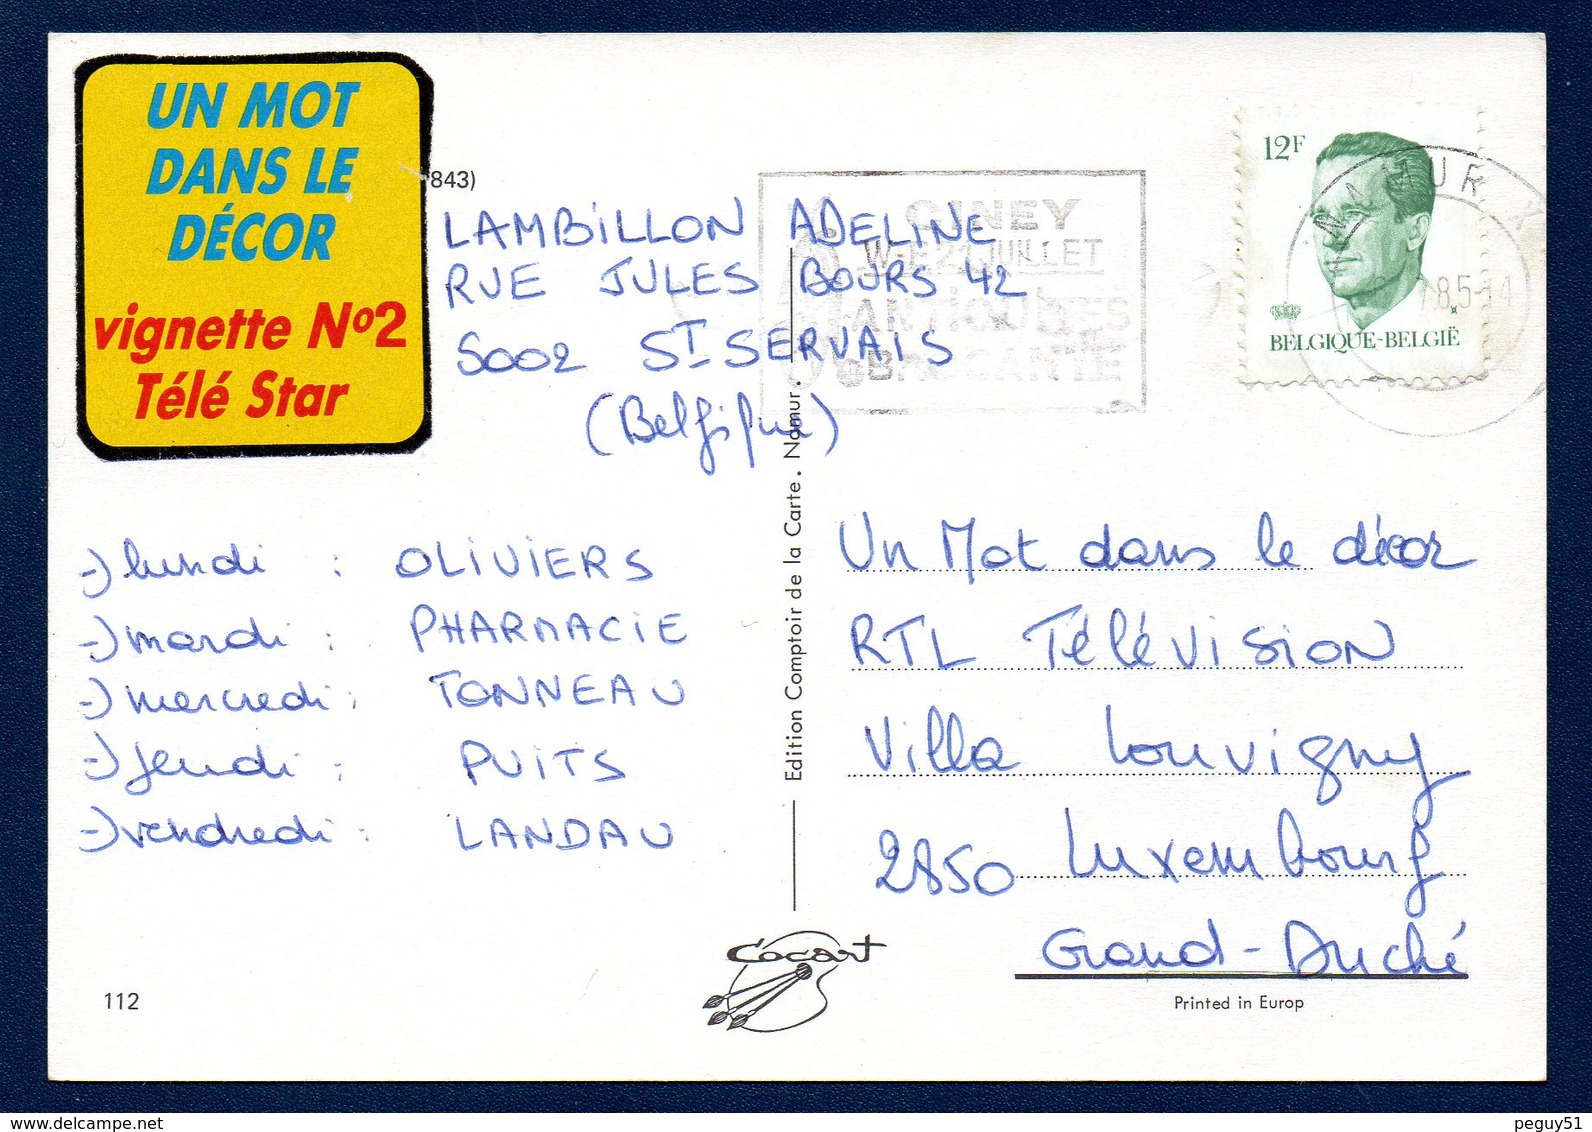 UN MOT
DANS LE
DÉCOR
vignette Nº2
Télé Star
843)
LAMBILLON ADELINE
RUE JULES BOURS 42
5002 ST SERVAIS
(Belgique)
CINEY
W-E 21 JUILLET
ANTIQUITES
BROCANTE
12F
BELGIQUE-BELGIË
NAMUR X
-) lundi : OLIVIERS
-) mardi : PHARMACIE
-) mercredi : TONNEAU
-) jeudi : PUITS
-) vendredi : LANDAU
Edition Comptoir de la Carte . Namur .
Un Mot dans le décor
RTL Télévision
Villa Louvigny
2850 Luxembourg
Grand-Duché
Cocart
112
Printed in Europ
peguy51
www.delcampe.net